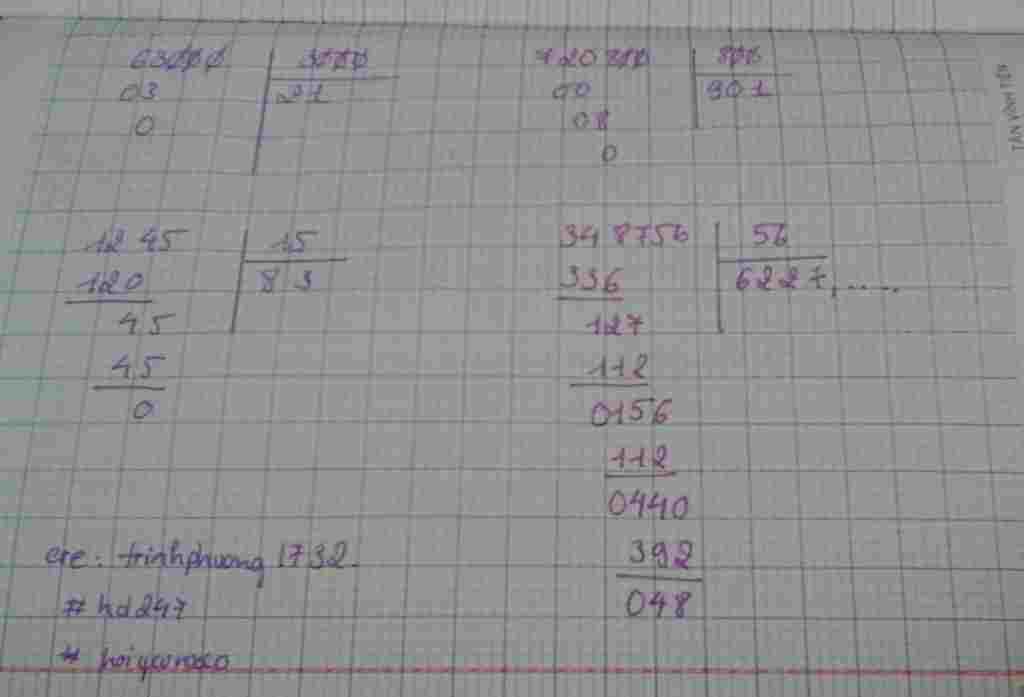 63000 3000
03 21
0
720800 800
00 901
08
0
1245 15
120 83
45
45
0
348756 56
336 6227,.....
127
112
0156
112
0440
392
048
cre: trinhphuong1732.
# hd247
TÂN VĨNH TIẾN